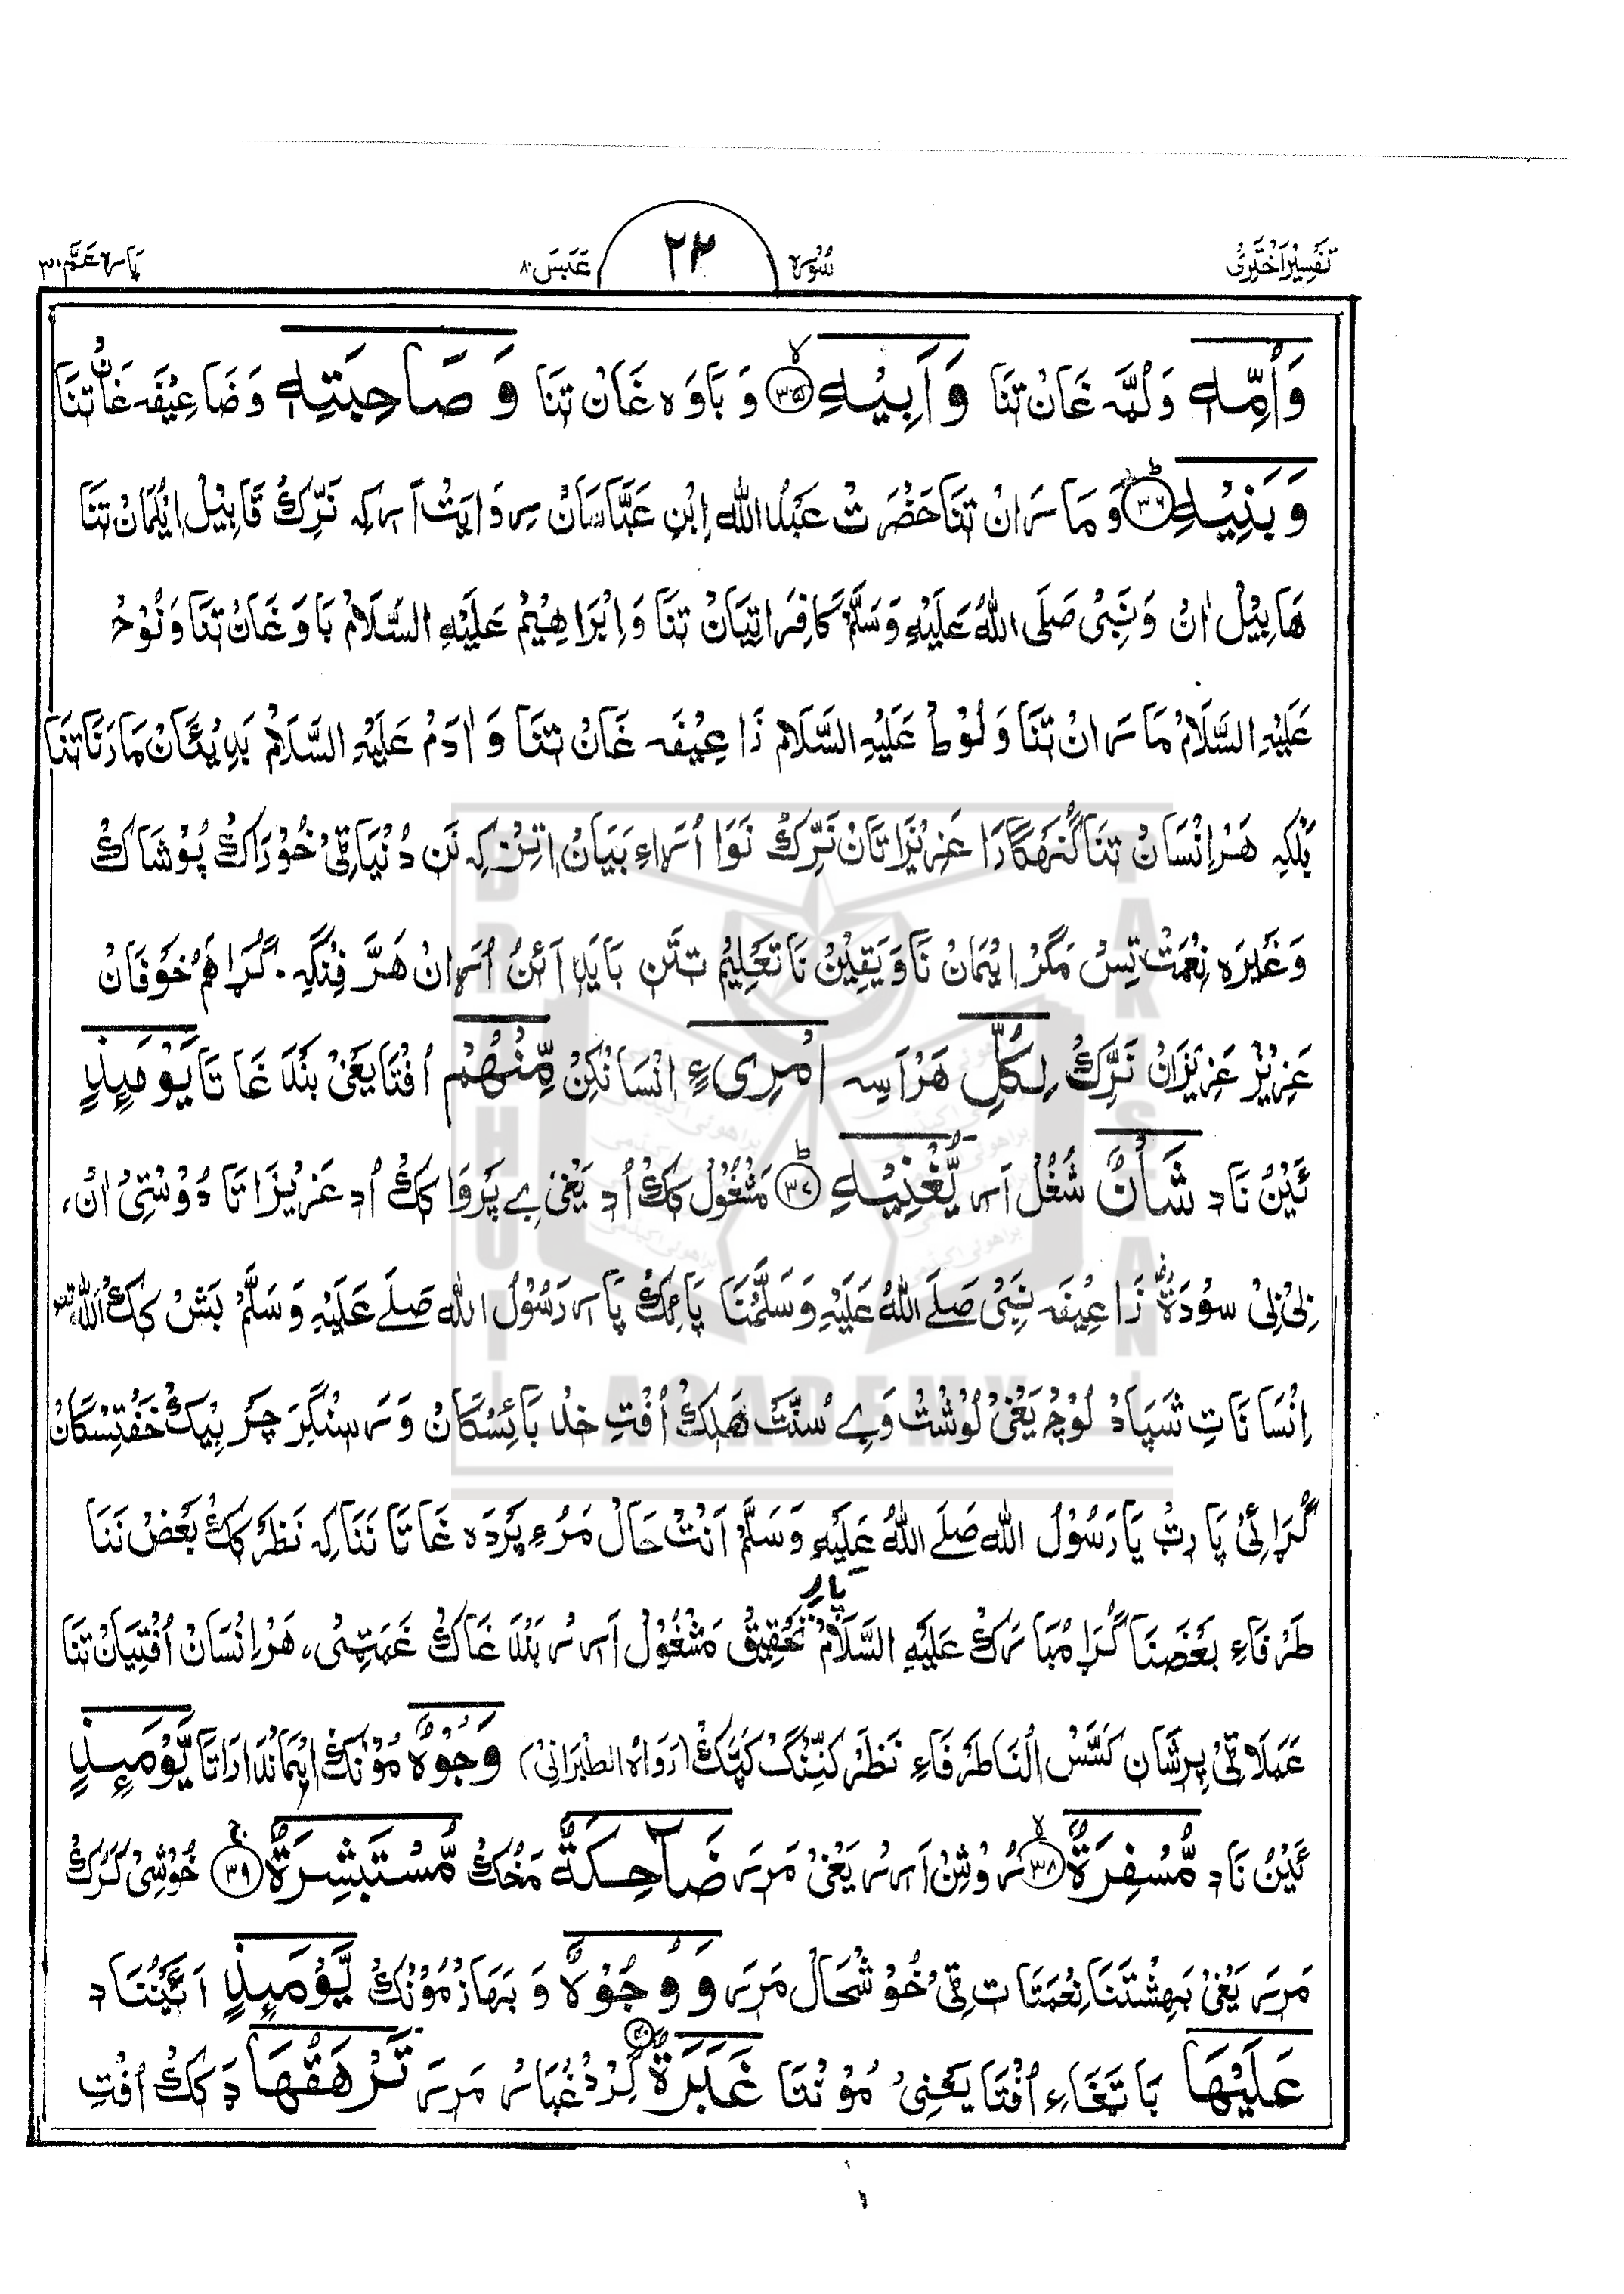 تَفْسِیْرِاَخْتَرِیْ سُوْرہ ۲۳ عَبَسَ ۸۰ پارہ عَمَّ ۳۰
وَاُمِّهٖ وَلُمَّہ غَانْ تَنَا وَاَبِیْهِ ﴿۳۵﴾ وَ بَاوَہ غَانْ تَنَا وَ صَاحِبَتِهٖ وَ ضَاعِیْفَہ غَانْ تَنَا
وَ بَنِیْهِ ﴿۳۶﴾ وَ مَارَانْ تَنَا حَضْرَتْ عَبْدُ اللّٰه اِبْنِ عَبَّاسَانْ رِوَایَتْ اَرِ کہ نَرِّكْ قَابِیْل اِیْلَمَانْ تَنَا
هَابِیْل اَنْ وَ نَبِیْ صَلَی اللّٰهُ عَلَیْهِ وَسَلَّمْ كَافِرَاتِیَانْ تَنَا وَ اِبْرَاهِیْمْ عَلَیْهِ السَّلَامْ بَاوَ غَانْ تَنَا وَنُوْحْ
عَلَیْهِ السَّلَامْ مَارَانْ تَنَا وَ لُوْطْ عَلَیْهِ السَّلَامْ ذَاعِیْفَہ غَانْ تَنَا وَ اٰدَمْ عَلَیْهِ السَّلَامْ بَدِیْئَانْ مَارَنَا تَنَا
بَلْكِہ هَرْاِنْسَانْ تَنَا گُنَهگَارَا عَزِیْزَاتَانْ نَرِّكْ نَوَا اُرَاءِ بَیَانْ اتِنْ كِہ نَن دُنْیَاتِیْ خُوْرَاكْ پُوْشَاكْ
وَغَیْرَہ نِعْمَتْ تِسْ مَگَرْ اِیْمَانْ نَا وَ یَقِیْنْ نَا تَعْلِیْمْ تِتَن بَایَدْ اَئِنْ اُرَانْ هَرَّ فِنْگِہ. گُرَا هَمْ خَوْفَانْ
عَزِیْزْ عَزِیْزَانْ نَرِّكْ لِكُلِّ هَرْاَسِہ امْرِیءٍ اِنْسَانْكِنْ مِّنْهُمْ اُفْتَا یَعْنِیْ بَنْدَ غَاتَا یَوْمَئِذٍ
ئَیْنْ نَاد شَاْنٌ شُغْل اَرِ یُّغْنِیْهِ ﴿۳۷﴾ مَشْغُوْل كِكْ اُد یَعْنِیْ بے پَرْوَا كِكْ اُد عَزِیْزَاتَا دُوْسْتِیْ اَنْ،
بِیْ بِیْ سَوْدَةْ ذَاعِیْفَہ نَبِیْ صَلَے اللّٰهُ عَلَیْهِ وَسَلَّمْنَا پَائِكْ پَارِ رَسُوْلُ اللّٰه صَلَے عَلَیْهِ وَسَلَّمْ بَشْ كِكْ اللّٰه
اِنْسَانَاتِ شَپَادْ لُوْچْ یَعْنِیْ لُوْشْتْ وَبے سُنَّتْ هَلِكْ اُفْتِ خَدْ بَائِسْكَانْ وَ رَسِنْگِرَ چَرْ بِیْكْ خَفْتِسْكَانْ
گُرَائِیْ پَارِتْ یَا رَسُوْل اللّٰه صَلَے اللّٰهُ عَلَیْهِ وَسَلَّمْ اَنْتْ حَالْ مَرْءِ پَرْدَہ غَاتَا نَنَا كِہ نَظَرْ كِكْ بَعْضْ نَنَا
طَرْفَاءِ بَعْضَنَا گُرَا مُبَارَكْ عَلَیْهِ السَّلَامْ پار تَحْقِیْقْ مَشْغُوْل اَرِرْ بَنْدَ غَاكْ غَمَتِیْ، هَرْاِنْسَانْ اُفْتِیَانْ تَنَا
عَمَلَاتِیْ پِرِشَان كَسَّسْ اَلْنَا طَرْفَاءِ نَظَرْ كَنِّنْگْ كَپَّكْ (رَوَاہُ الطَّبَرَانِیْ) وُجُوْہٌ مُوْنْكْ اِیْمَانْدَارَاتَا یَّوْمَئِذٍ
ئَیْنْ نَاد مُّسْفِرَةٌ ﴿۳۸﴾ رُوْشِنْ اَرِرْ یَعْنِیْ مَرِرَ ضَاحِكَةٌ مَخُكْ مُّسْتَبْشِرَةٌ ﴿۳۹﴾ خُوْشِیْ كَرُكْ
مَرِرَ یَعْنِیْ بَهِشْتَنَا نِعْمَتَاتِ تِیْ خُوْشْحَالْ مَرِرَ وَ وُجُوْہٌ وَ بَهَازْ مُوْنْكْ یَّوْمَئِذٍ اَئَیْنَنَاد
عَلَیْهَا بَاتَغَاءِ اُفْتَا یَعْنِیْ مُوْنْتَا غَبَرَةٌ ﴿۴۰﴾ گِرْدْ غُبَارْ مَرِرَ تَرْهَقُهَا دَكِكْ اُفْتِ